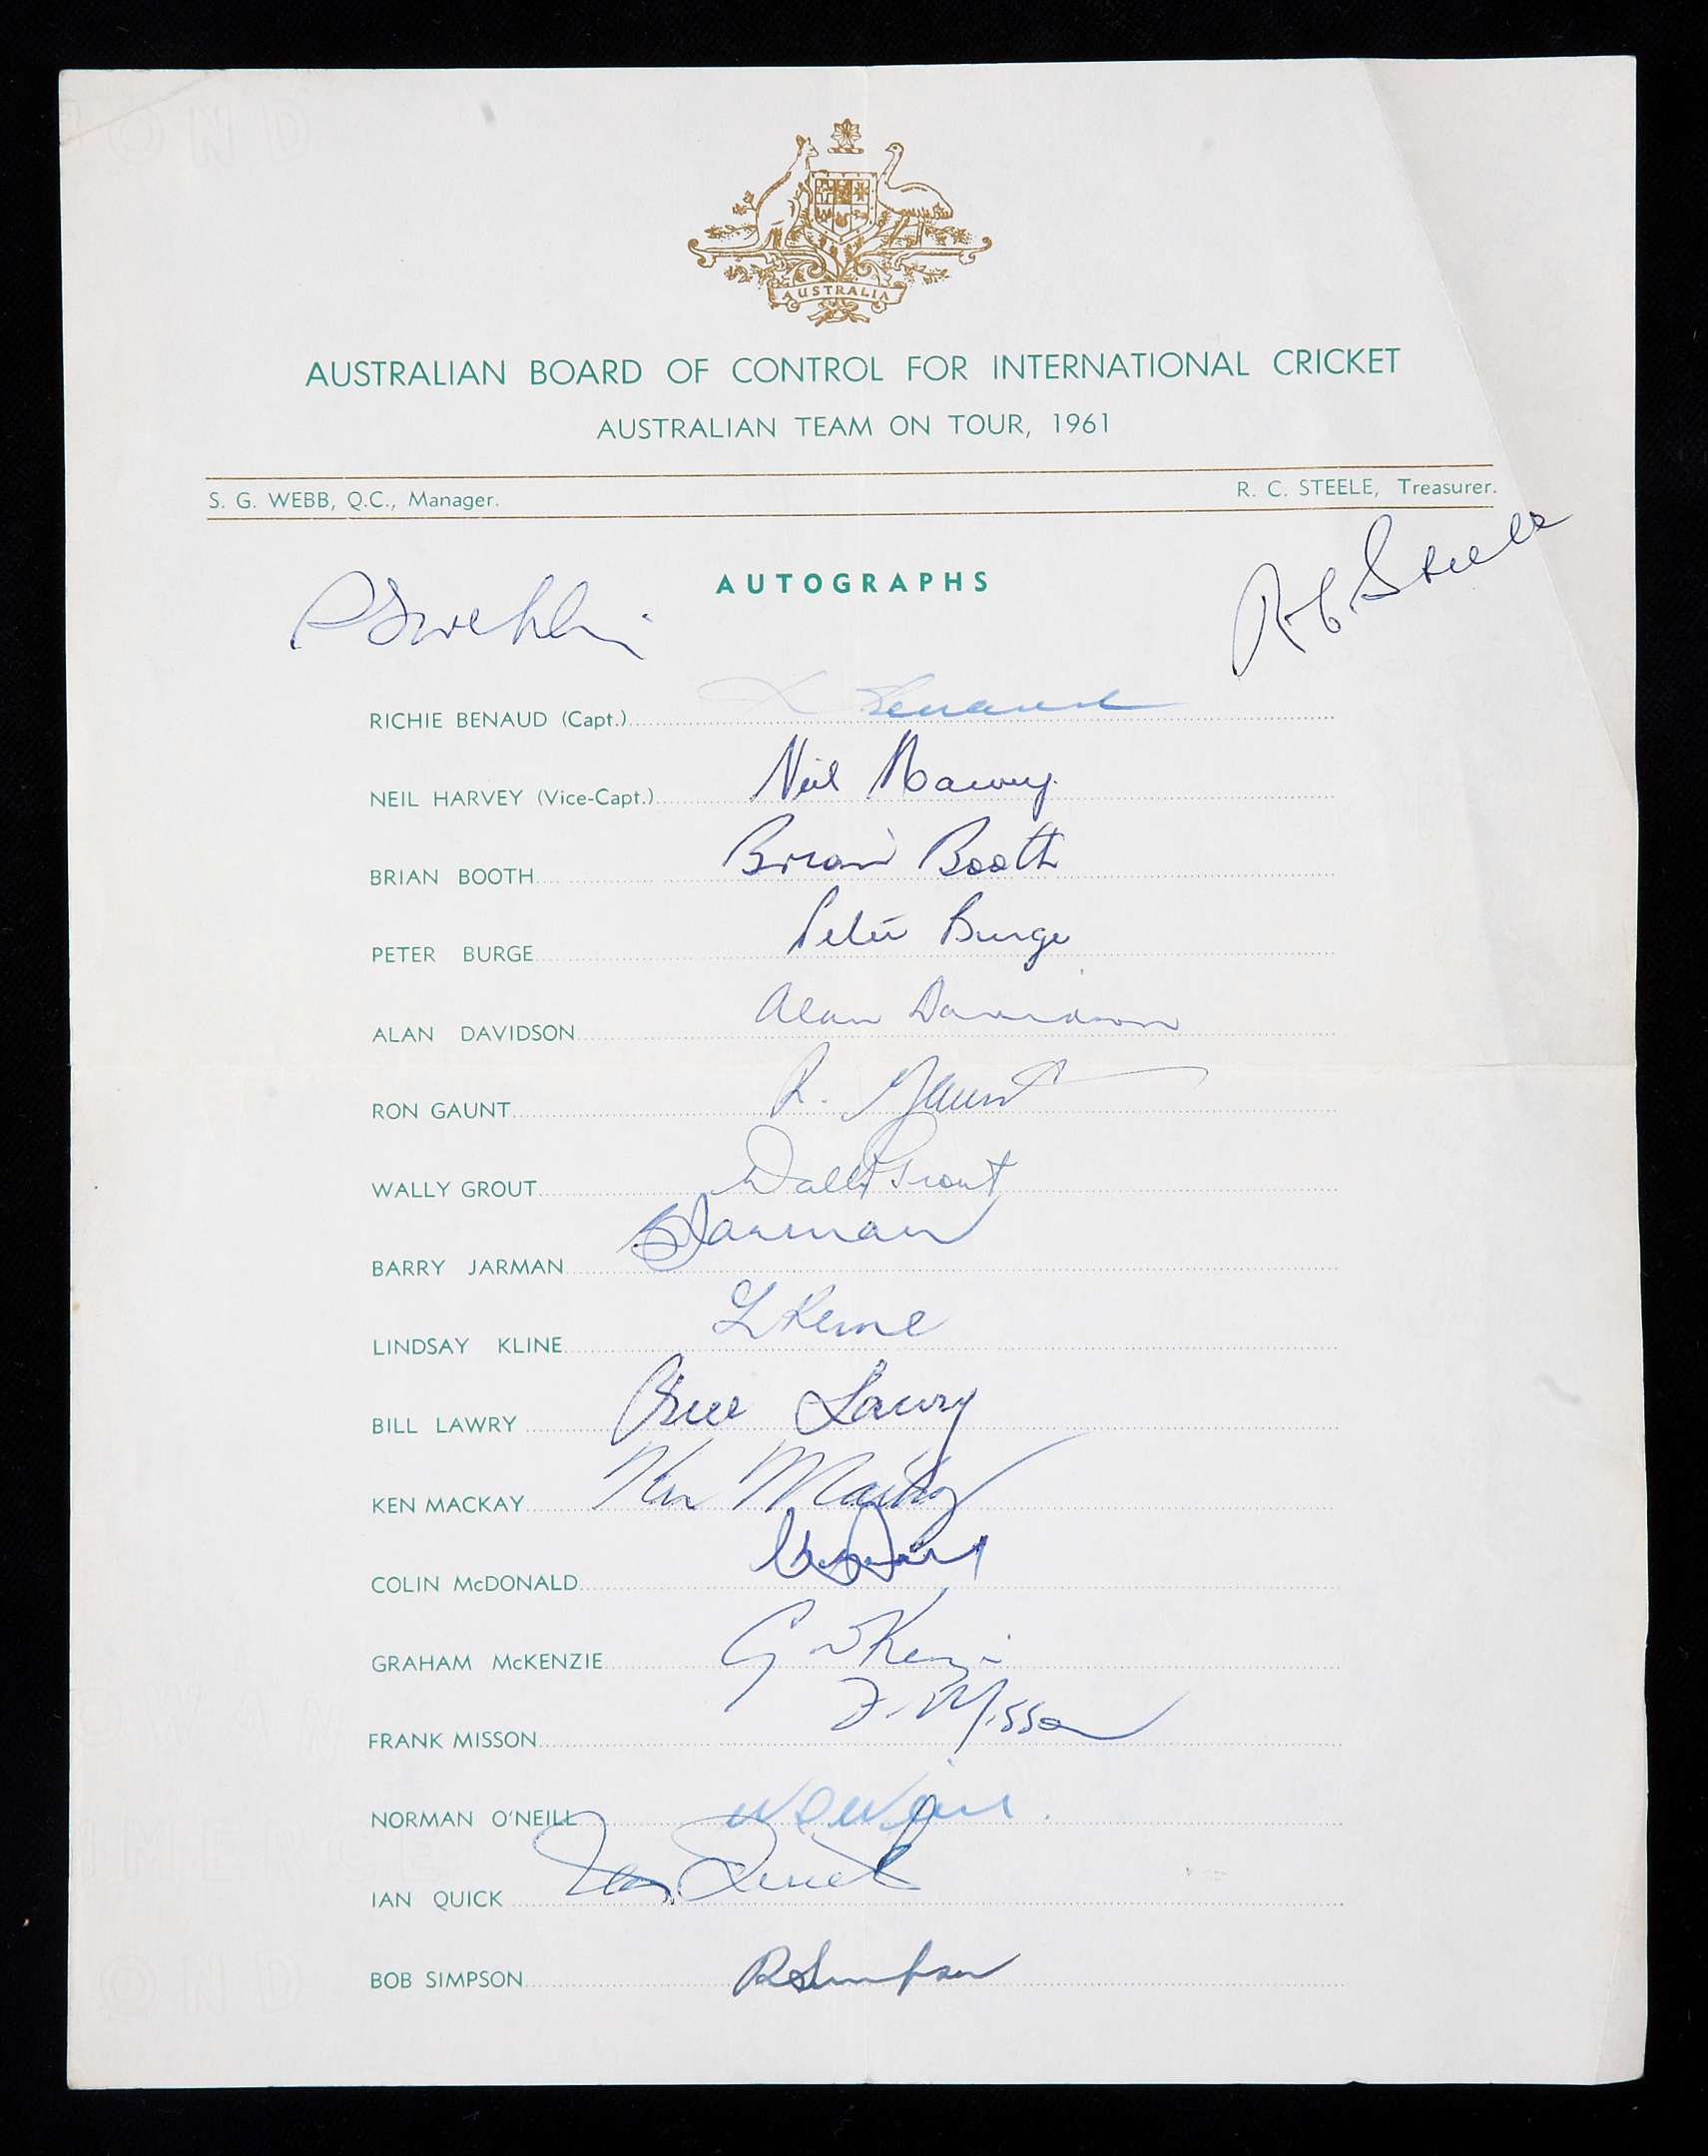 AUSTRALIA
AUSTRALIAN BOARD OF CONTROL FOR INTERNATIONAL CRICKET
AUSTRALIAN TEAM ON TOUR, 1961
S. G. WEBB, Q.C., Manager. R. C. STEELE, Treasurer.
AUTOGRAPHS
R C Steele
RICHIE BENAUD (Capt.) Benaud
NEIL HARVEY (Vice-Capt.) Neil Harvey
BRIAN BOOTH Brian Booth
PETER BURGE Peter Burge
ALAN DAVIDSON Alan Davidson
RON GAUNT R. Gaunt
WALLY GROUT Wally Grout
BARRY JARMAN B Jarman
LINDSAY KLINE L Kline
BILL LAWRY Bill Lawry
KEN MACKAY Ken Mackay
COLIN McDONALD
GRAHAM McKENZIE G McKenzie
FRANK MISSON F. Misson
NORMAN O'NEILL
IAN QUICK Ian Quick
BOB SIMPSON R Simpson